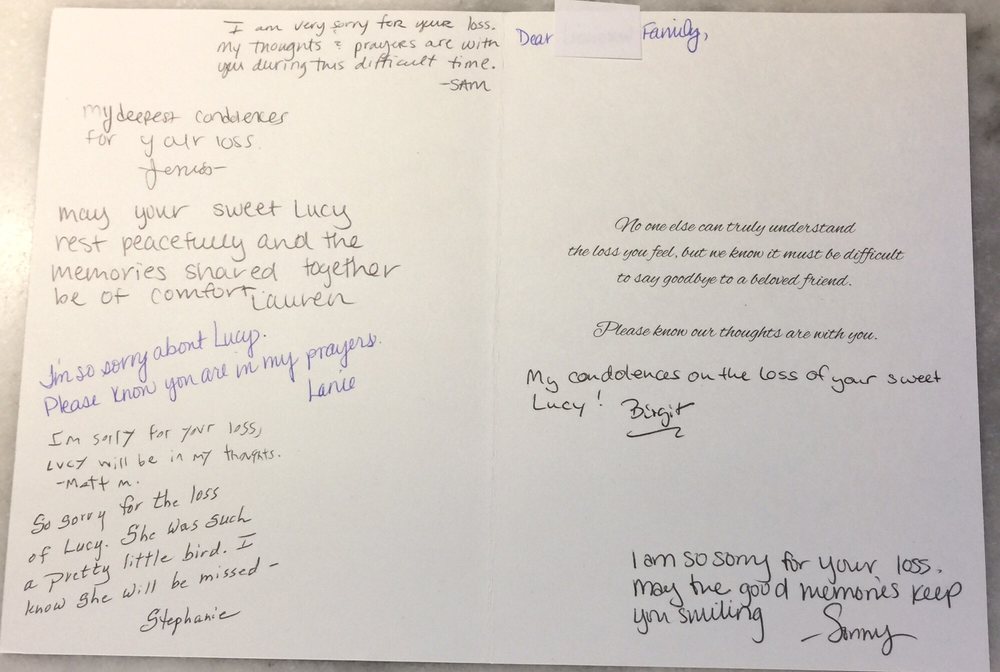 I am very sorry for your loss.
My thoughts & prayers are with
you during this difficult time.
-SAM
My deepest condolences
for your loss.
may your sweet Lucy
rest peacefully and the
memories shared together
be of comfort Lauren
I'm so sorry about Lucy.
Please know you are in my prayers.
Lanie
I'm sorry for your loss,
Lucy will be in my thoughts.
-Matt M.
So sorry for the loss
of Lucy. She was such
a pretty little bird. I
know she will be missed -
Stephanie
Dear Family,
No one else can truly understand
the loss you feel, but we know it must be difficult
to say goodbye to a beloved friend.
Please know our thoughts are with you.
My condolences on the loss of your sweet
Lucy! Birgit
I am so sorry for your loss.
May the good memories keep
you smiling -Sonny